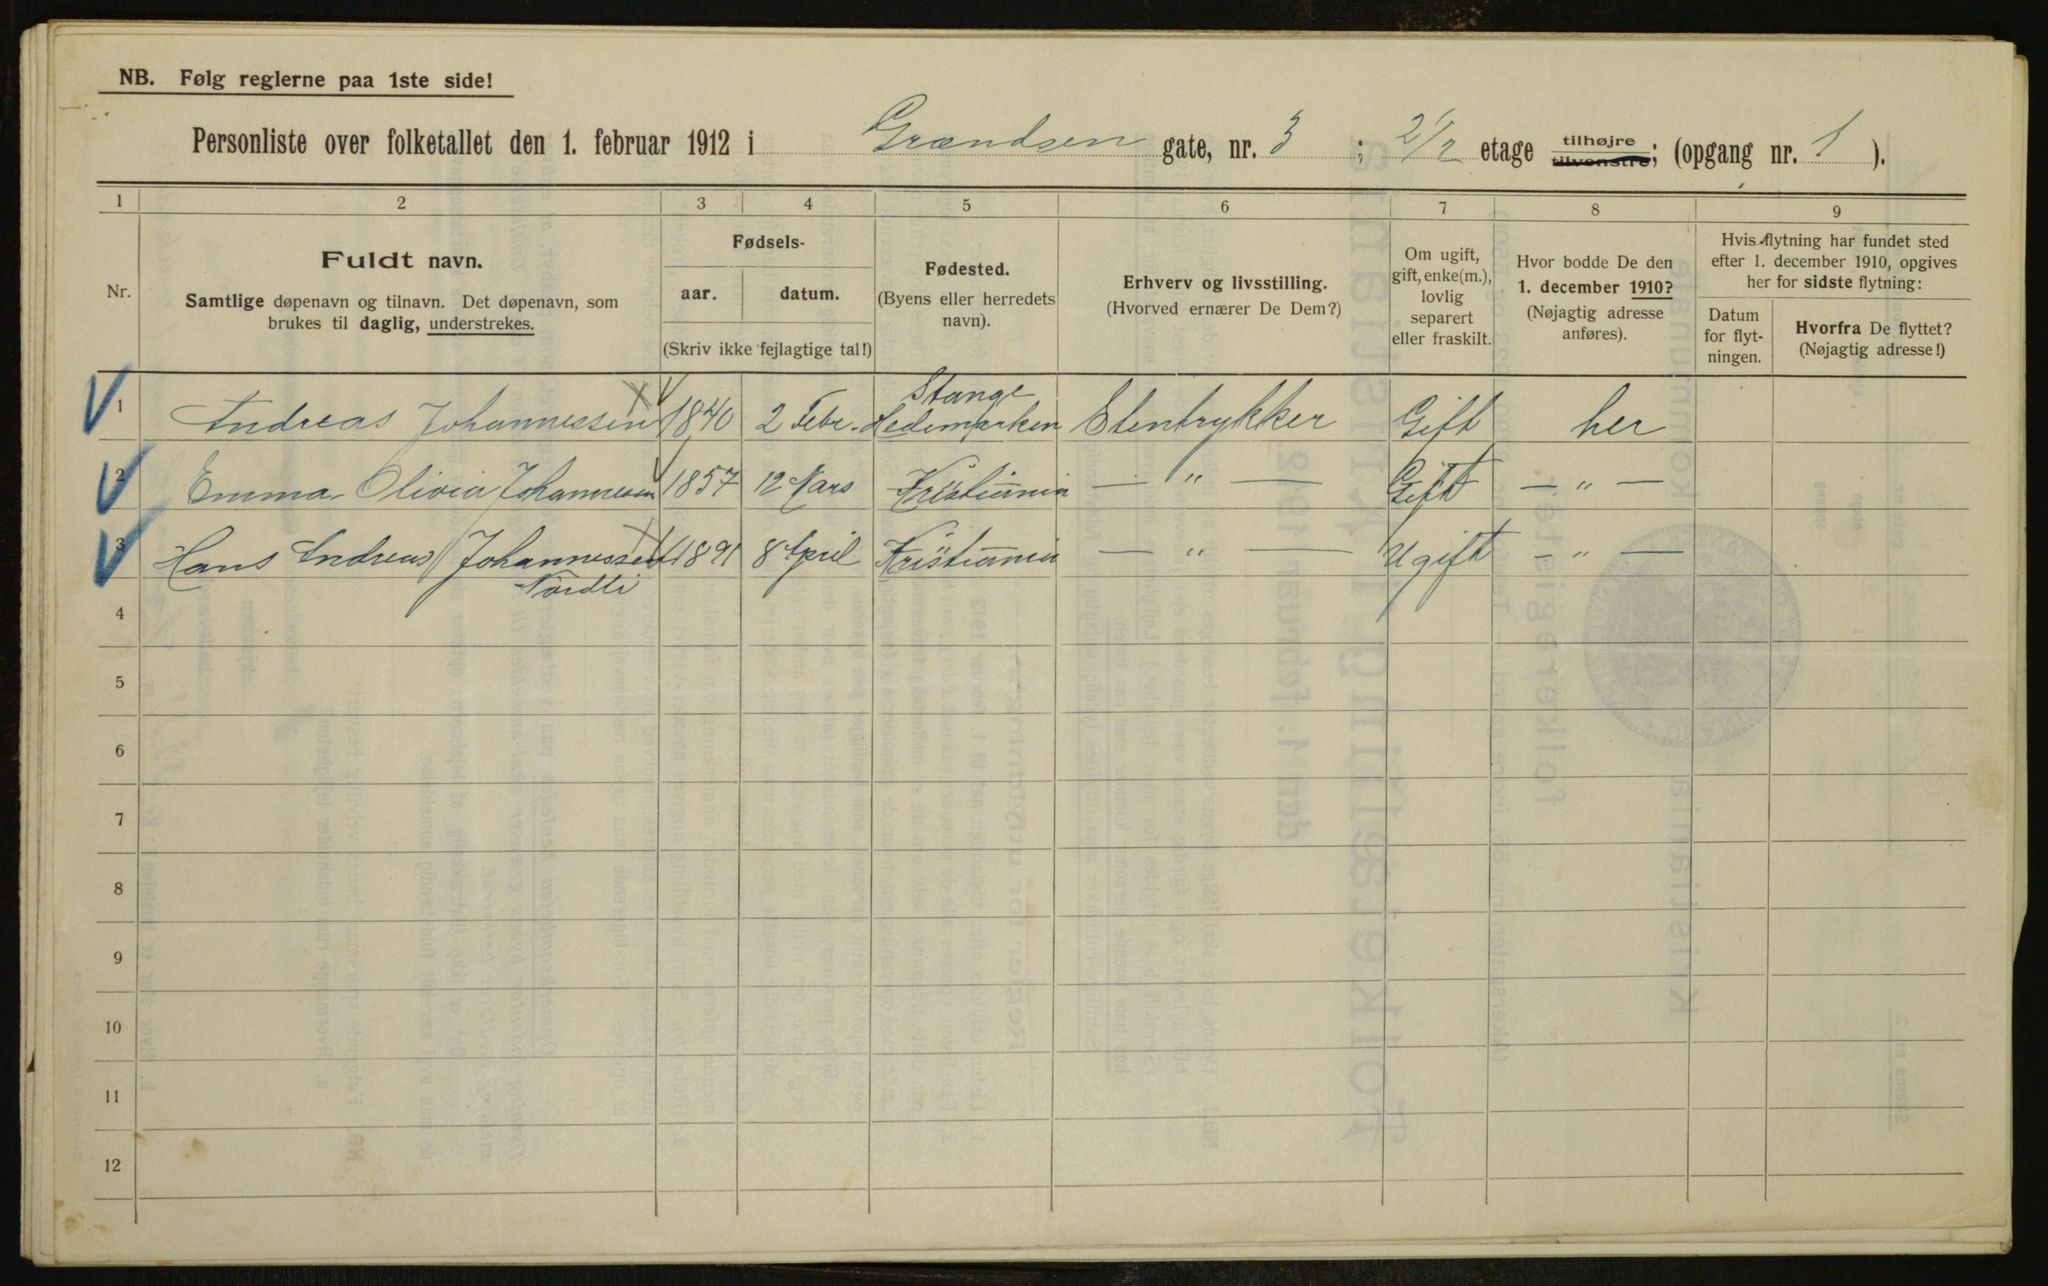 NB. Følg reglerne paa 1ste side!
Personliste over folketallet den 1. februar 1912 i Grændsen gate, nr. 3 ; 2 1/2 etage tilhøjre tilvenstre; (opgang nr. 1 ).
1 2 3 4 5 6 7 8 9
Nr.
Fuldt navn.
Samtlige døpenavn og tilnavn. Det døpenavn, som
brukes til daglig, understrekes.
Fødsels-
aar. datum.
(Skriv ikke fejlagtige tal!)
Fødested.
(Byens eller herredets
navn).
Erhverv og livsstilling.
(Hvorved ernærer De Dem?)
Om ugift,
gift, enke(m.),
lovlig
separert
eller fraskilt.
Hvor bodde De den
1. december 1910?
(Nøjagtig adresse
anføres).
Hvis flytning har fundet sted
efter 1. december 1910, opgives
her for sidste flytning:
Datum
for flyt-
ningen.
Hvorfra De flyttet?
(Nøjagtig adresse!)
Stange
1 Andreas Johannessen 1840 2 Febr. Hedemarken Stentrykker Gift her
2 Emma Olivia Johannesen 1857 12 Mars Kristiania — " — Gift — " —
3 Hans Andreas Johannessen 1891 8 April Kristiania — " — Ugift — " —
Nordli
4
5
6
7
8
9
10
11
12